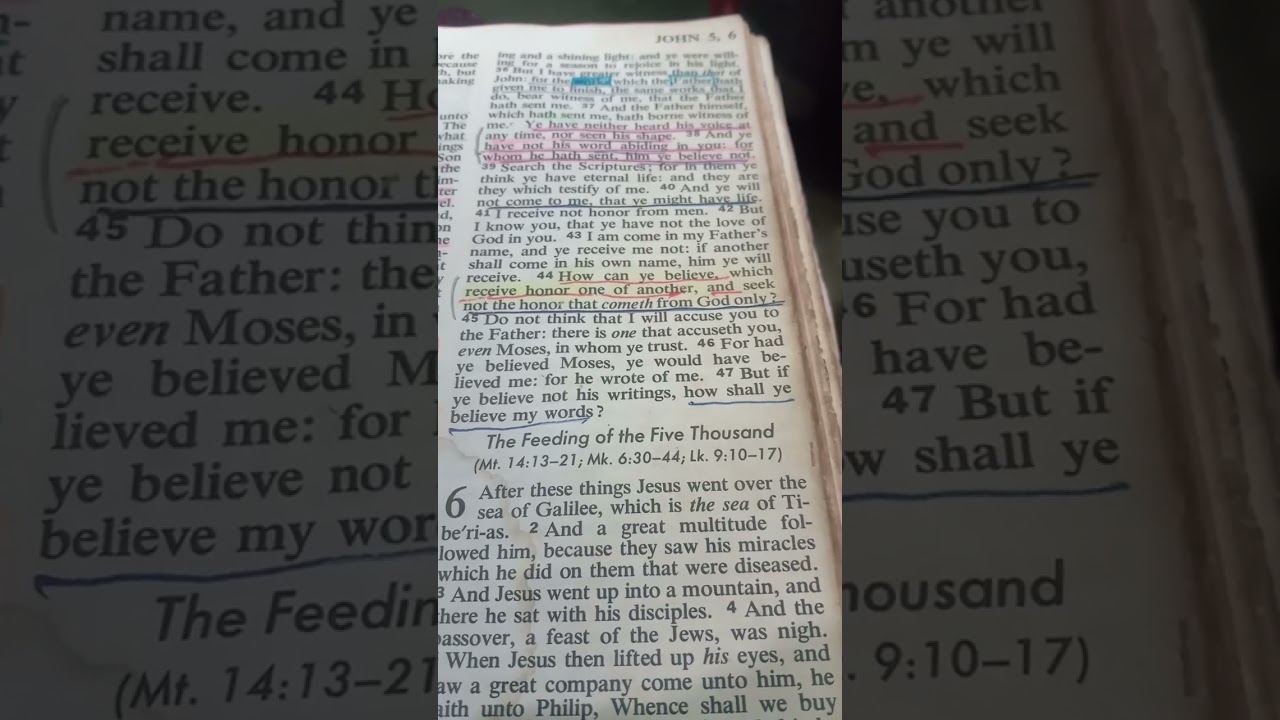 JOHN 5, 6
ing and a shining light: and ye were will-
ing for a season to rejoice in his light.
36 But I have greater witness than that of
John: for the works which the Father hath
given me to finish, the same works that I
do, bear witness of me, that the Father
hath sent me. 37 And the Father himself,
which hath sent me, hath borne witness of
me. Ye have neither heard his voice at
any time, nor seen his shape. 38 And ye
have not his word abiding in you: for
whom he hath sent, him ye believe not.
39 Search the Scriptures; for in them ye
think ye have eternal life: and they are
they which testify of me. 40 And ye will
not come to me, that ye might have life.
41 I receive not honor from men. 42 But
I know you, that ye have not the love of
God in you. 43 I am come in my Father's
name, and ye receive me not: if another
shall come in his own name, him ye will
receive. 44 How can ye believe, which
receive honor one of another, and seek
not the honor that cometh from God only?
45 Do not think that I will accuse you to
the Father: there is one that accuseth you,
even Moses, in whom ye trust. 46 For had
ye believed Moses, ye would have be-
lieved me: for he wrote of me. 47 But if
ye believe not his writings, how shall ye
believe my words?
The Feeding of the Five Thousand
(Mt. 14:13–21; Mk. 6:30–44; Lk. 9:10–17)
6 After these things Jesus went over the
sea of Galilee, which is the sea of Ti-
be'ri-as. 2 And a great multitude fol-
lowed him, because they saw his miracles
which he did on them that were diseased.
3 And Jesus went up into a mountain, and
there he sat with his disciples. 4 And the
passover, a feast of the Jews, was nigh.
When Jesus then lifted up his eyes, and
saw a great company come unto him, he
saith unto Philip, Whence shall we buy